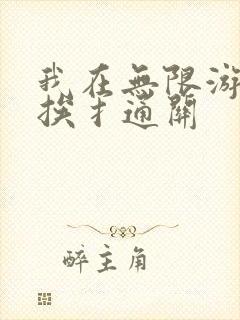 我在無限游
挨扌通關
醉主角